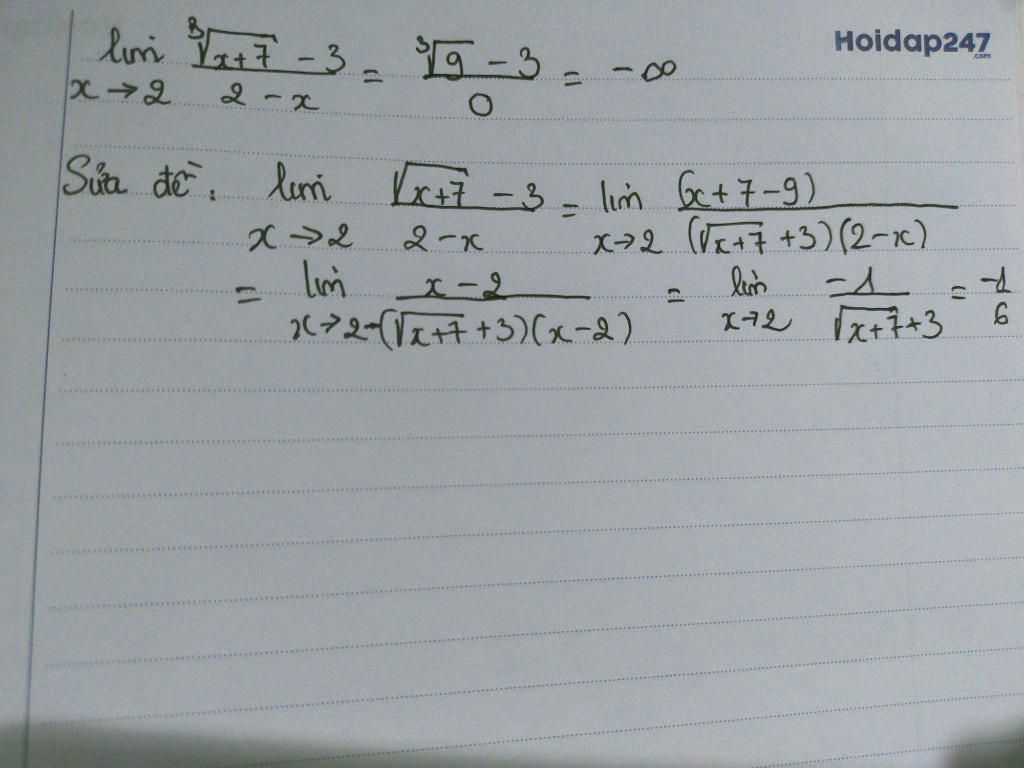 Hoidap247
.com
lim x→2 (∛(x+7) - 3)/(2 - x) = (∛9 - 3)/0 = -∞
Sửa đề: lim x→2 (√(x+7) - 3)/(2-x) = lim x→2 (x+7-9)/((√(x+7) +3)(2-x))
= lim x→2 (x-2)/(-(√(x+7) +3)(x-2)) = lim x→2 -1/(√(x+7)+3) = -1/6